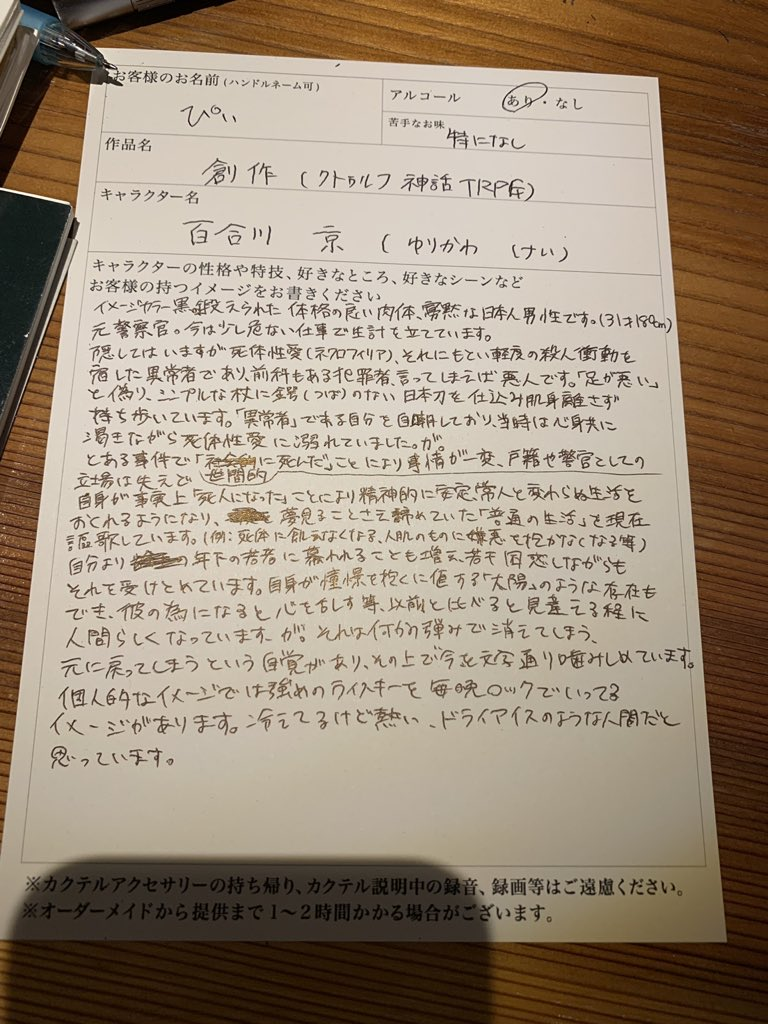 お客様のお名前(ハンドルネーム可)
ぴぃ
アルコール あり・なし
苦手なお味
特になし
作品名
創作(クトゥルフ神話TRPG)
キャラクター名
百合川 京(ゆりかわ けい)
キャラクターの性格や特技、好きなところ、好きなシーンなど
お客様の持つイメージをお書きください
イメージカラー黒。鍛えられた体格の良い肉体、寡黙な日本人男性です。(31才189cm)
元警察官。今は少し危ない仕事で生計を立てています。
隠してはいますが死体性愛(ネクロフィリア)、それにもとい軽度の殺人衝動を
宿した異常者であり、前科もある犯罪者、言ってしまえば悪人です。「足が悪い」
と偽り、シンプルな杖に鍔(つば)のない日本刀を仕込み肌身離さず
持ち歩いています。「異常者」である自分を自嘲しており、当時は心身共に
渇きながら死体性愛に溺れていました。が。
とある事件で「世間的に死んだ」ことにより事情が一変、戸籍や警官としての
立場は失えで
自身が事実上「死人になった」ことにより精神的に安定、常人と変わらぬ生活を
おくれるようになり、夢見ることさえ諦めていた「普通の生活」を現在
謳歌しています。(例:死体に飢えなくなる、人肌のものに嫌悪を抱かなくなる等)
自分より年下の若者に慕われることも増え、若干困惑しながらも
それを受けとめています。自身が憧憬を抱くに値する「太陽」のような存在も
でき、彼の為になると心を右しす等、以前と比べると見違える程に
人間らしくなっていますが。それは何かの弾みで消えてしまう、
元に戻ってしまうという自覚があり、その上で今を文字通り噛みしめています。
個人的なイメージでは強めのウイスキーを毎晩ロックでいってる
イメージがあります。冷えてるけど熱い、ドライアイスのような人間だと
思っています。
※カクテルアクセサリーの持ち帰り、カクテル説明中の録音、録画等はご遠慮ください。
※オーダーメイドから提供まで1〜2時間かかる場合がございます。